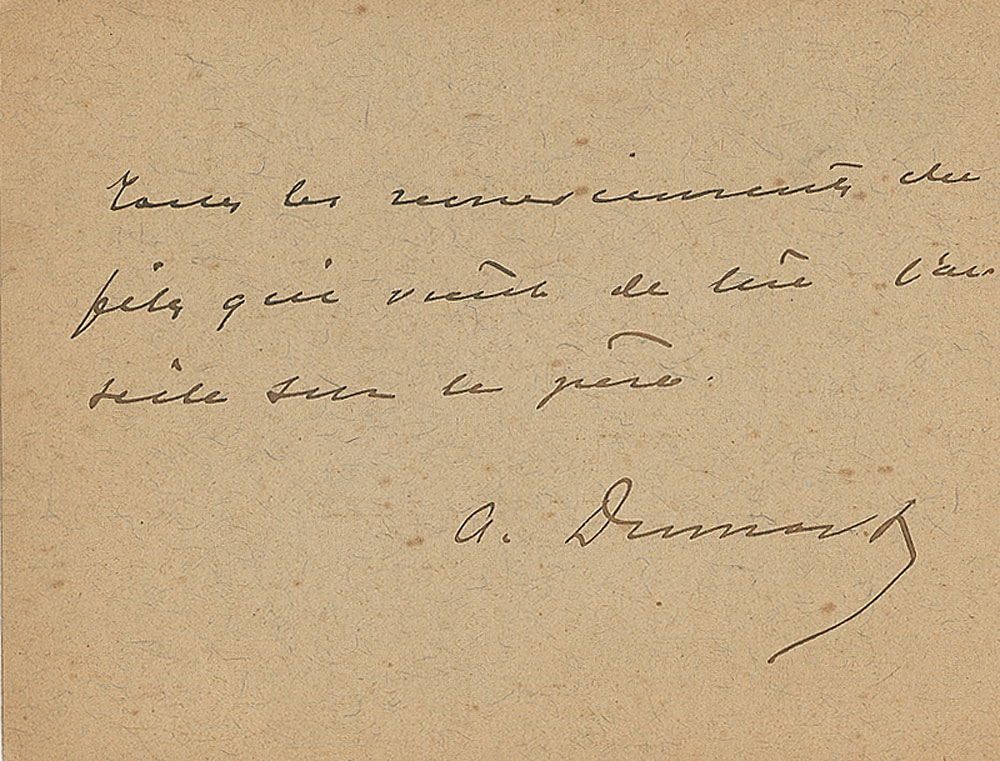 Tous les remerciements du
fils qui vient de lire l'ar
ticle sur le père.
A. Dumas f